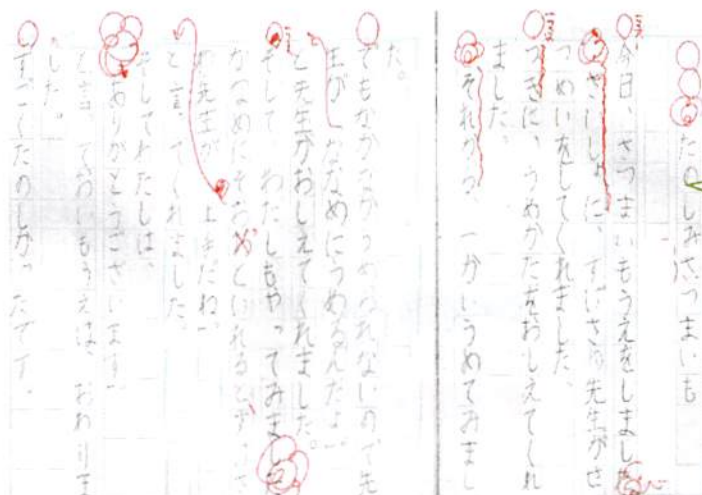 たのしみさつまいも
今日、さつまいもうえをしました
さいしょに、すいさ 先生がさ
つめいをしてくれました。
つぎに、うめかたをおしえてくれ
ました。
それから、一かいうめてみまし
た。
でもなかなかうめられないので先
生が「ななめにつめるんだよ。」
と先生がおしえてくれました。
そして、わたしもやってみました
ななめにそおめといれると
先生が「上手だね。」
と言ってくれました。
そしてわたしは、
ありがとうございます。
と言っておいもうえは、おわりま
した。
すごくたのしかったです。